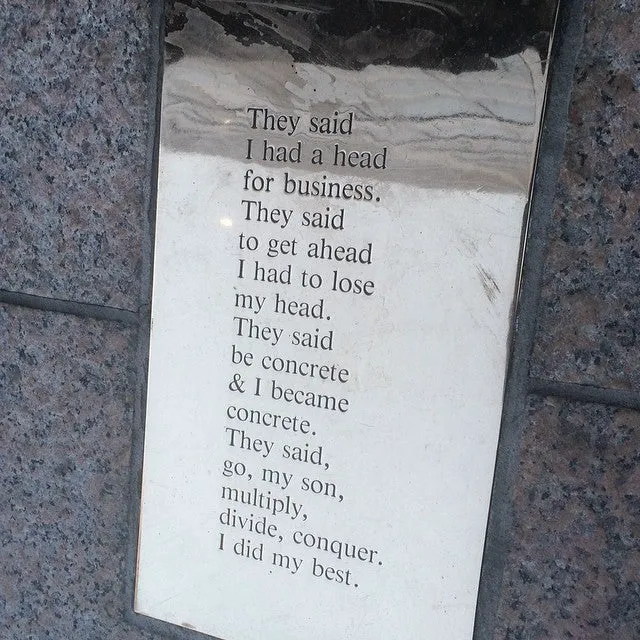 They said
I had a head
for business.
They said
to get ahead
I had to lose
my head.
They said
be concrete
& I became
concrete.
They said,
go, my son,
multiply,
divide, conquer.
I did my best.